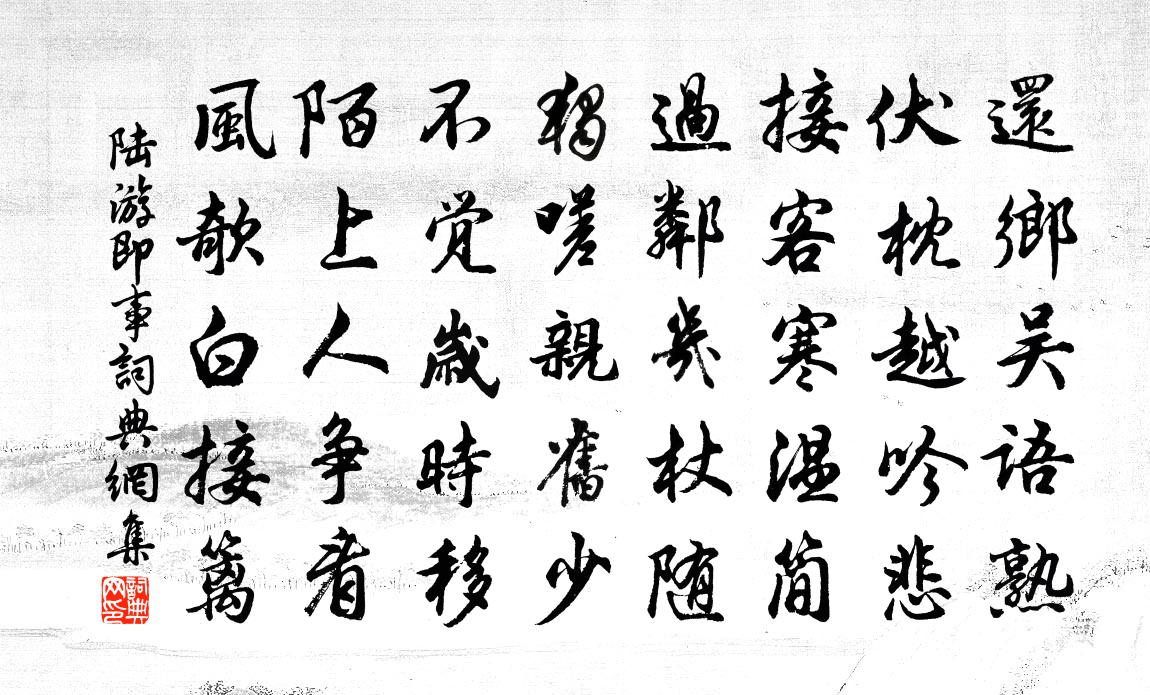 還鄉吴語熟
伏枕越吟悲
接客寒温簡
過鄰幾杖随
獨嗟親舊少
不覺歳時移
陌上人争看
風欹白接篱
陸游即事詞典網集
詞典网印